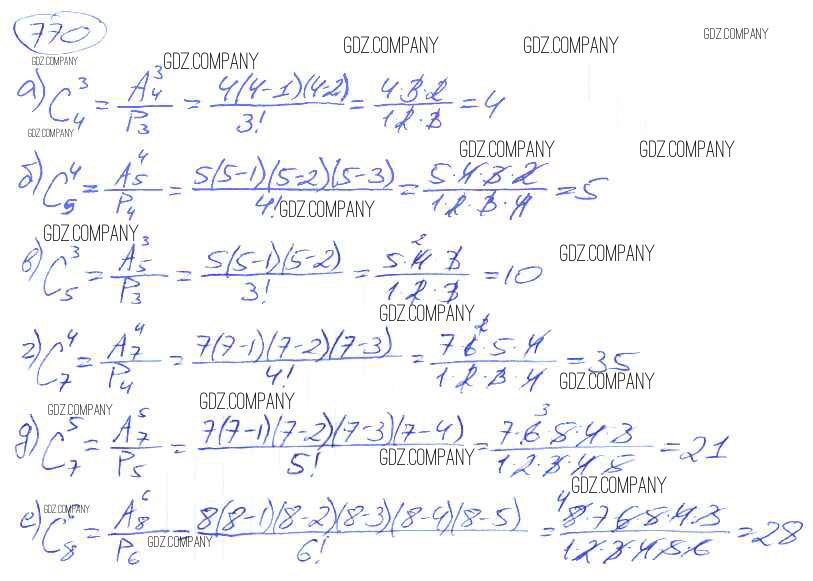 770
GDZ.COMPANY GDZ.COMPANY GDZ.COMPANY
GDZ.COMPANY GDZ.COMPANY
а) C₄³ = A₄³/P₃ = 4(4-1)(4-2)/3! = 4·3·2/1·2·3 = 4
GDZ.COMPANY GDZ.COMPANY GDZ.COMPANY
б) C₅⁴ = A₅⁴/P₄ = 5(5-1)(5-2)(5-3)/4! = 5·4·3·2/1·2·3·4 = 5
GDZ.COMPANY
GDZ.COMPANY GDZ.COMPANY
в) C₅³ = A₅³/P₃ = 5(5-1)(5-2)/3! = 5·4·3/1·2·3 = 10
GDZ.COMPANY
г) C₇⁴ = A₇⁴/P₄ = 7(7-1)(7-2)(7-3)/4! = 7·6·5·4/1·2·3·4 = 35
GDZ.COMPANY
GDZ.COMPANY GDZ.COMPANY
д) C₇⁵ = A₇⁵/P₅ = 7(7-1)(7-2)(7-3)(7-4)/5! = 7·6·5·4·3/1·2·3·4·5 = 21
GDZ.COMPANY
GDZ.COMPANY GDZ.COMPANY
е) C₈⁶ = A₈⁶/P₆ = 8(8-1)(8-2)(8-3)(8-4)(8-5)/6! = 8·7·6·5·4·3/1·2·3·4·5·6 = 28
GDZ.COMPANY